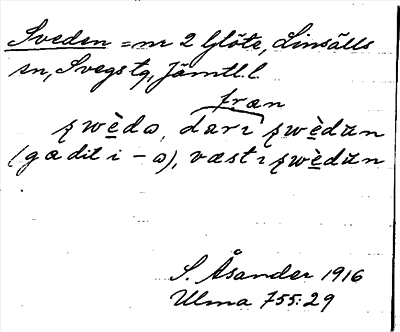 Sveden = nr 2 Glöte, Linsälls
sn, Svegs tg, Jämtl. l.
fræn
swèdα, dærɩ swèdαn
(gα dit i – α), væst ɩ swèdαn
S. Åsander 1916
Ulma 755:29